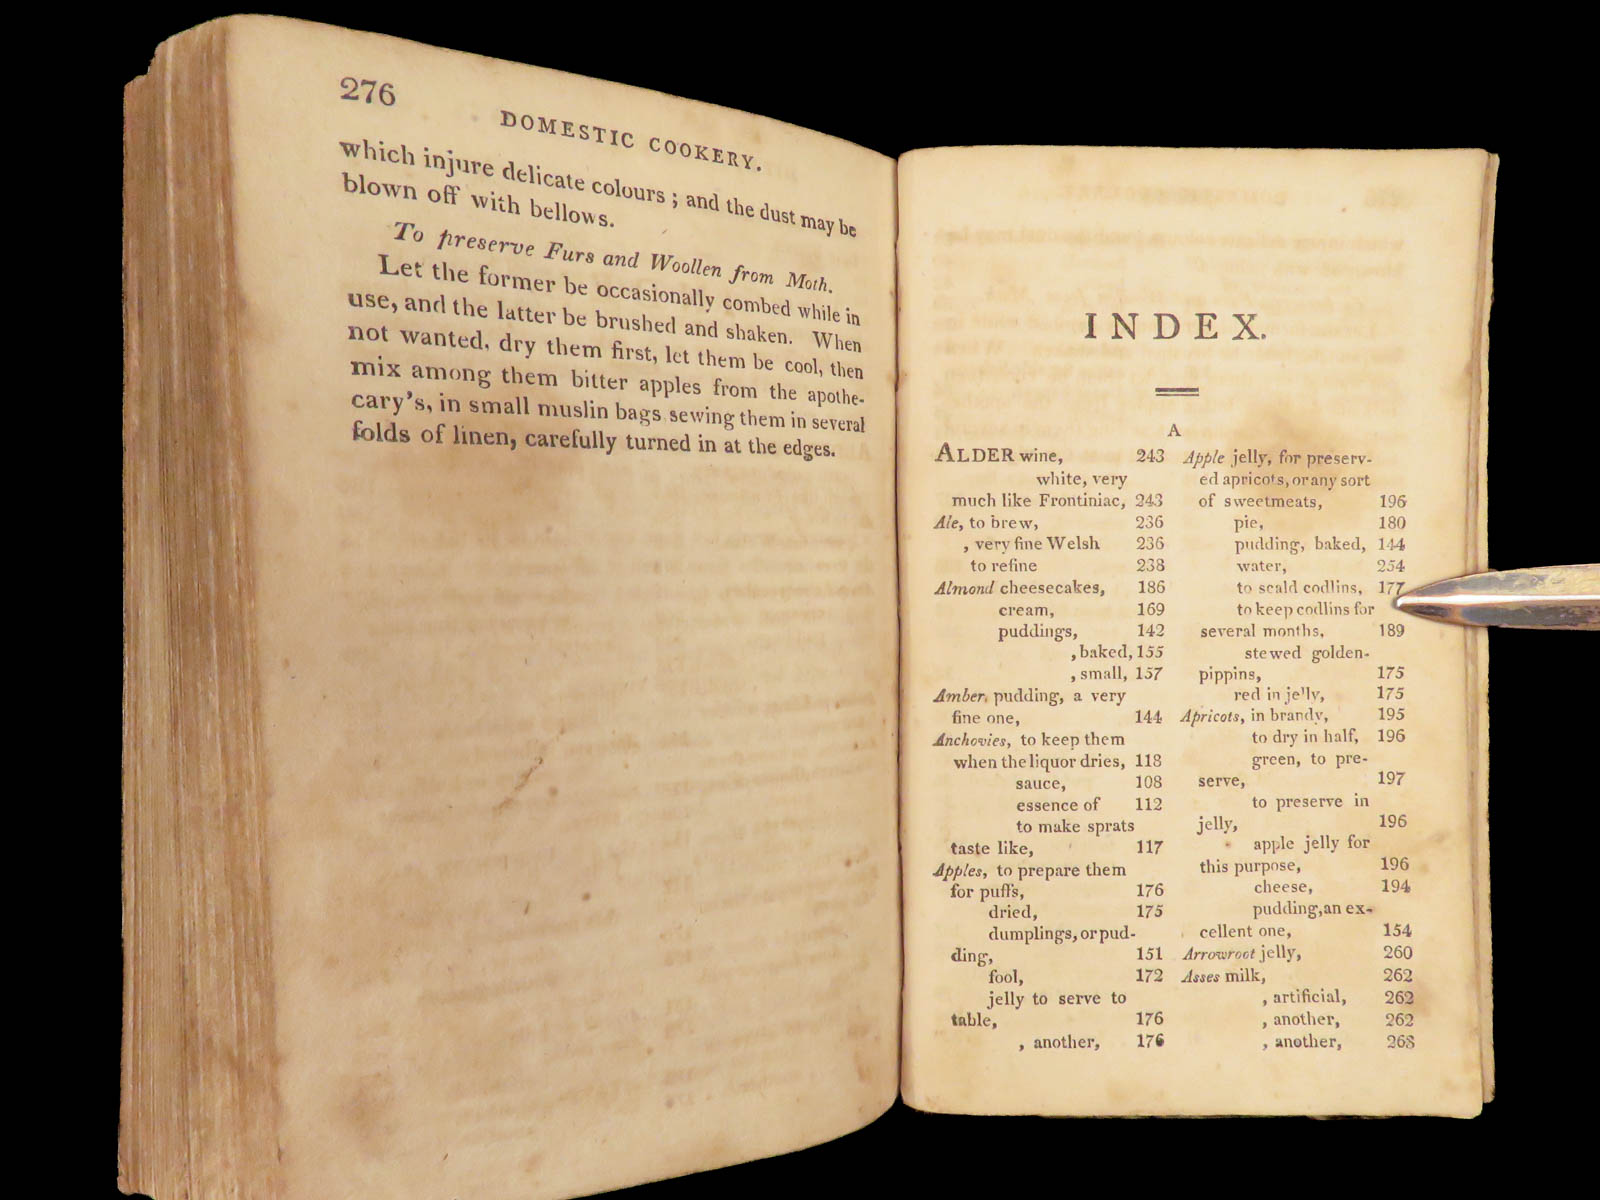 276
DOMESTIC COOKERY.
which injure delicate colours ; and the dust may be
blown off with bellows.
To preserve Furs and Woollen from Moth.
Let the former be occasionally combed while in
use, and the latter be brushed and shaken. When
not wanted, dry them first, let them be cool, then
mix among them bitter apples from the apothe-
cary's, in small muslin bags sewing them in several
folds of linen, carefully turned in at the edges.
INDEX.
A
ALDER wine, 243
white, very
much like Frontiniac, 243
Ale, to brew, 236
, very fine Welsh 236
to refine 238
Almond cheesecakes, 186
cream, 169
puddings, 142
, baked, 155
, small, 157
Amber, pudding, a very
fine one, 144
Anchovies, to keep them
when the liquor dries, 118
sauce, 108
essence of 112
to make sprats
taste like, 117
Apples, to prepare them
for puffs, 176
dried, 175
dumplings, or pud-
ding, 151
fool, 172
jelly to serve to
table, 176
, another, 176
Apple jelly, for preserv-
ed apricots, or any sort
of sweetmeats, 196
pie, 180
pudding, baked, 144
water, 254
to scald codlins, 177
to keep codlins for
several months, 189
stewed golden-
pippins, 175
red in jelly, 175
Apricots, in brandy, 195
to dry in half, 196
green, to pre-
serve, 197
to preserve in
jelly, 196
apple jelly for
this purpose, 196
cheese, 194
pudding, an ex-
cellent one, 154
Arrowroot jelly, 260
Asses milk, 262
, artificial, 262
, another, 262
, another, 263